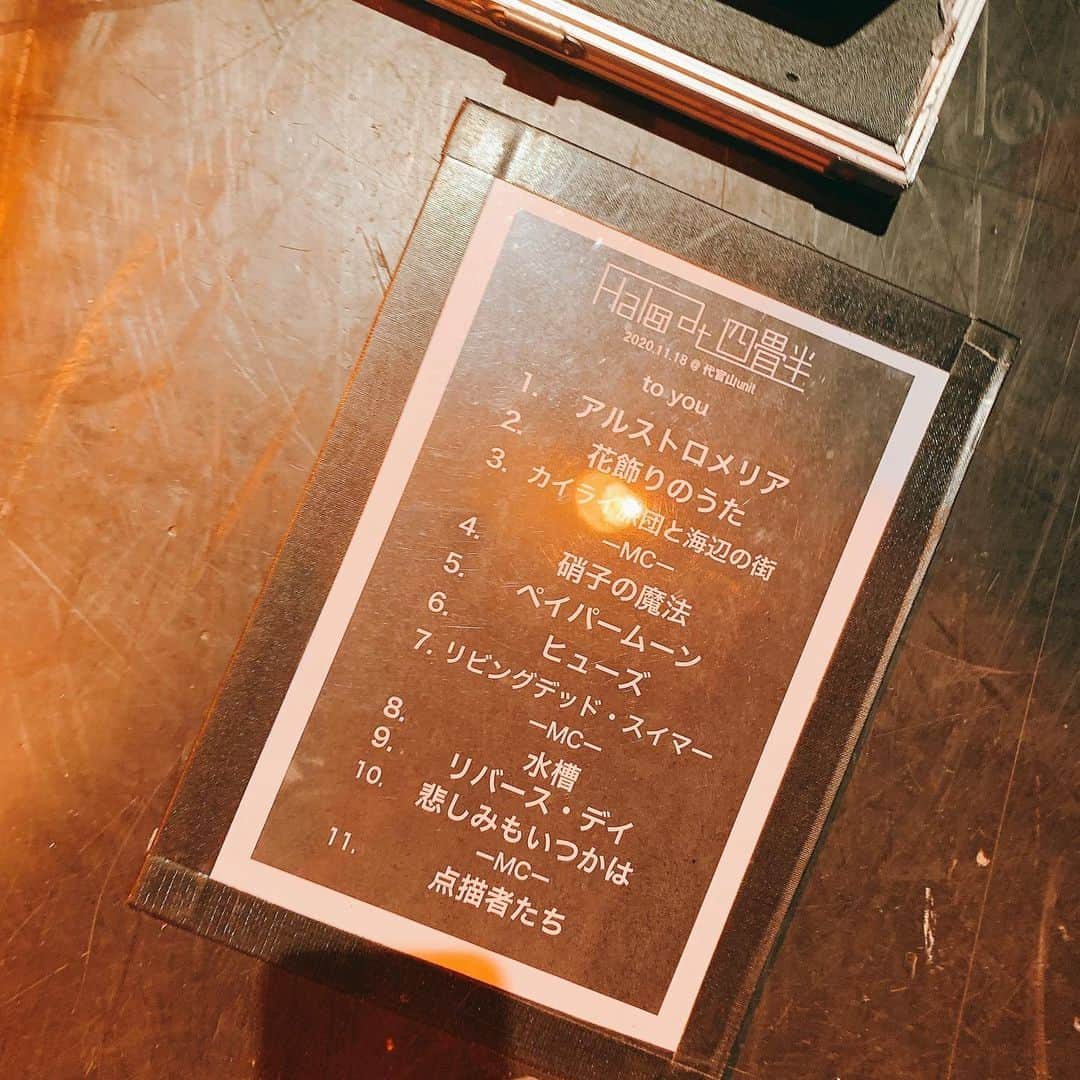 Halo at 四畳半
2020.11.18 @ 代官山unit
to you
1. アルストロメリア
2. 花飾りのうた
3. カイライ団と海辺の街
ーMCー
4. 硝子の魔法
5. ペイパームーン
6. ヒューズ
7. リビングデッド・スイマー
ーMCー
8. 水槽
9. リバース・デイ
10. 悲しみもいつかは
ーMCー
11. 点描者たち